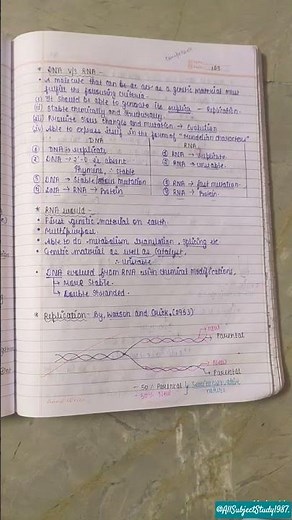 185
* DNA v/s RNA -
• A molecule that can be act as a genetic material must
fulfill the following criteria -
(i) It should be able to generate its replica - Replication
(ii) Stable chemically and structurally
(iii) Provide slow changes and mutation → Evolution
(iv) Able to express itself in the form of "Mendelian characters"
DNA
RNA
① DNA → replicate
① RNA → replicate
② DNA → 2'-O is absent
② RNA → unstable.
Thymine ∴ stable
③ DNA → Stable mutation
③ RNA → fast mutation
④ DNA → RNA → Protein
④ RNA → Protein
* RNA world -
• First genetic material on earth
• Multipurpose
• Able to do metabolism, translation, splicing etc
• Genetic material as well as catalyst.
∴ unstable
• DNA evolved from RNA with chemical modifications,
↳ More Stable.
↳ Double Stranded.
* Replication - by, Watson and Crick, (1953)
New
→ Parental
New
→ Parental
- 50% Parental
- 50% New
@AllSubjectStudy1987.